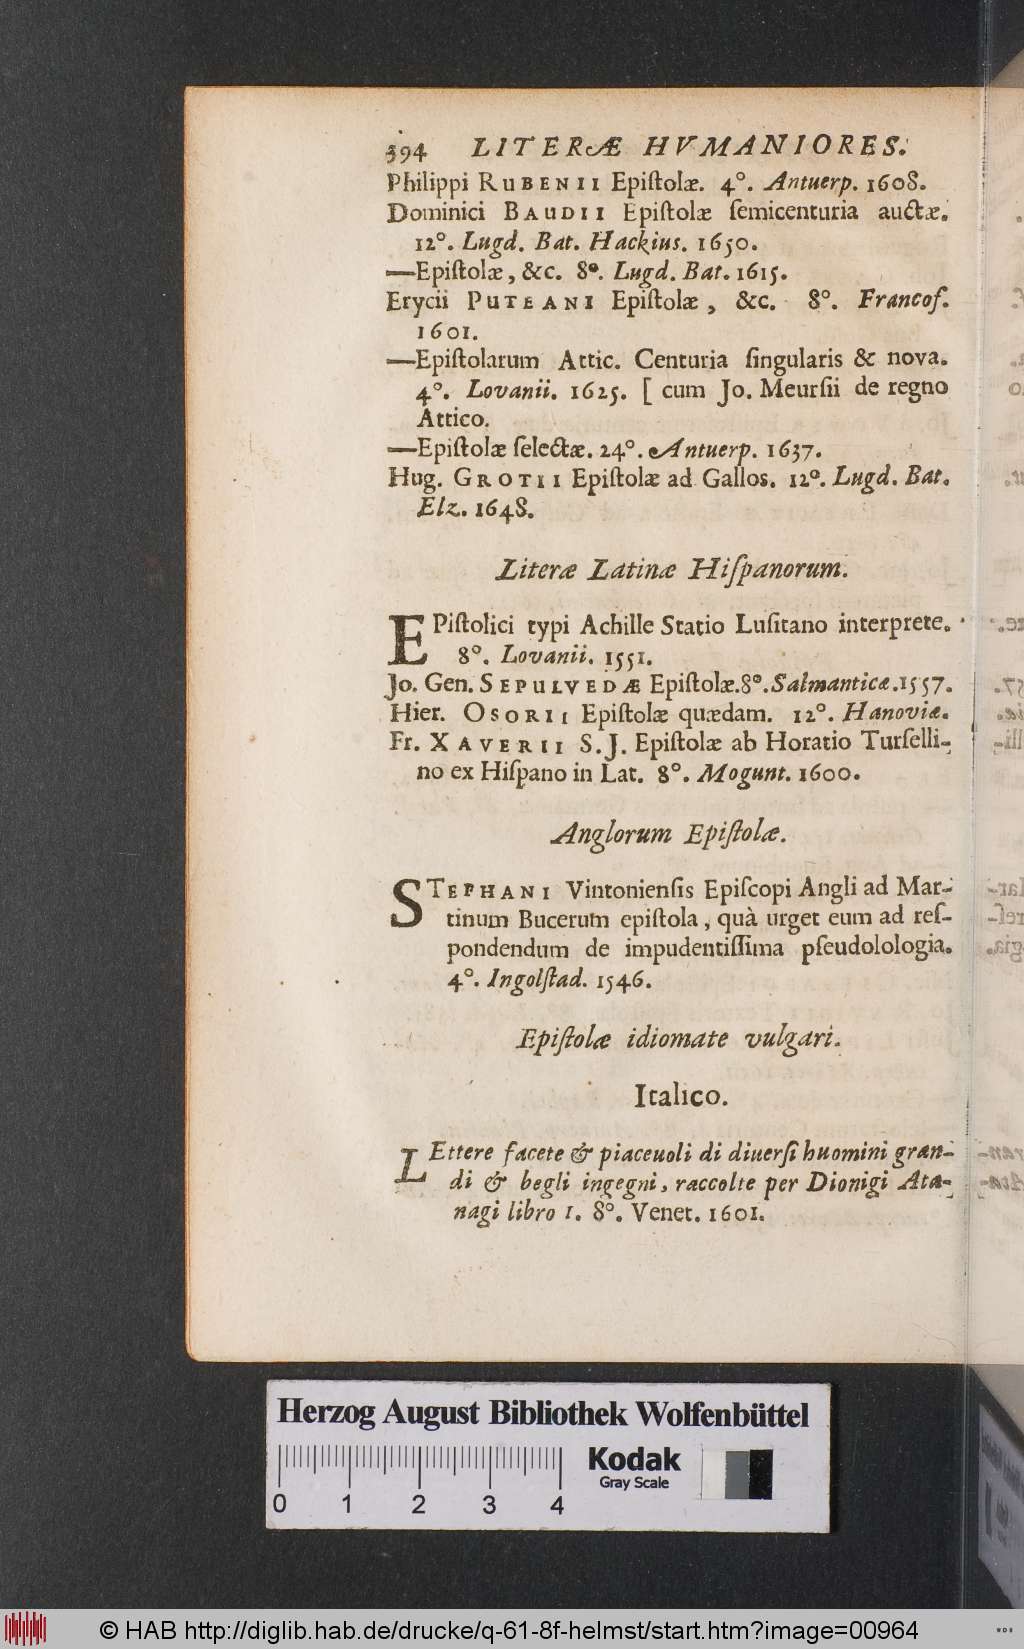 394 LITERÆ HVMANIORES.
Philippi RUBENII Epiſtolæ. 4°. Antuerp. 1608.
Dominici BAUDII Epiſtolæ ſemicenturia auctæ.
12°. Lugd. Bat. Hackius. 1650.
—Epiſtolæ, &c. 8°. Lugd. Bat. 1615.
Erycii PUTEANI Epiſtolæ, &c. 8°. Francof.
1601.
—Epiſtolarum Attic. Centuria ſingularis & nova.
4°. Lovanii. 1625. [ cum Jo. Meurſii de regno
Attico.
—Epiſtolæ ſelectæ. 24°. Antuerp. 1637.
Hug. GROTII Epiſtolæ ad Gallos. 12°. Lugd. Bat.
Elz. 1648.
Literæ Latinæ Hiſpanorum.
EPiſtolici typi Achille Statio Luſitano interprete.
8°. Lovanii. 1551.
Jo. Gen. SEPULVEDÆ Epiſtolæ.8°.Salmanticæ.1557.
Hier. OSORII Epiſtolæ quædam. 12°. Hanoviæ.
Fr. XAVERII S.J. Epiſtolæ ab Horatio Turſelli-
no ex Hiſpano in Lat. 8°. Mogunt. 1600.
Anglorum Epiſtolæ.
STEPHANI Vintonienſis Epiſcopi Angli ad Mar-
tinum Bucerum epiſtola, quà urget eum ad reſ-
pondendum de impudentiſſima pſeudolologia.
4°. Ingolſtad. 1546.
Epiſtolæ idiomate vulgari.
Italico.
LEttere facete & piaceuoli di diuerſi huomini gran-
di & begli ingegni, raccolte per Dionigi Ata-
nagi libro 1. 8°. Venet. 1601.
Herzog August Bibliothek Wolfenbüttel
Kodak
Gray Scale
0 1 2 3 4
© HAB http://diglib.hab.de/drucke/q-61-8f-helmst/start.htm?image=00964